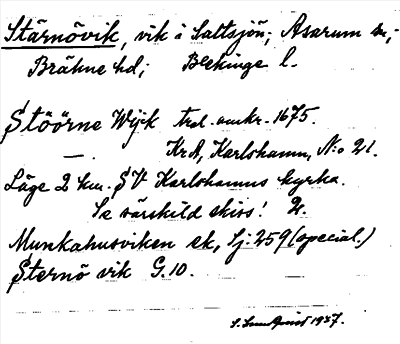 Stärnövik, vik i Saltsjön; Asarum sn;
Bräkne hd; Blekinge l.
Stöörne Wijk trol. omkr. 1675.
— KrA, Karlshamn, N:o 21.
Läge 2 km. SV Karlshamns kyrka.
Se särskild skiss! 2.
Munkahusviken ek, Sj: 259 (special.)
Sternö vik G.10.
1937.